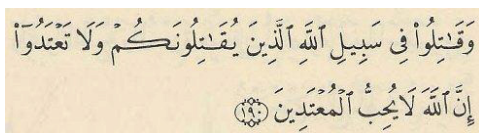 وَقَٰتِلُوا۟ فِى سَبِيلِ ٱللَّهِ ٱلَّذِينَ يُقَٰتِلُونَكُمْ وَلَا تَعْتَدُوٓا۟
إِنَّ ٱللَّهَ لَا يُحِبُّ ٱلْمُعْتَدِينَ ﴿١٩٠﴾